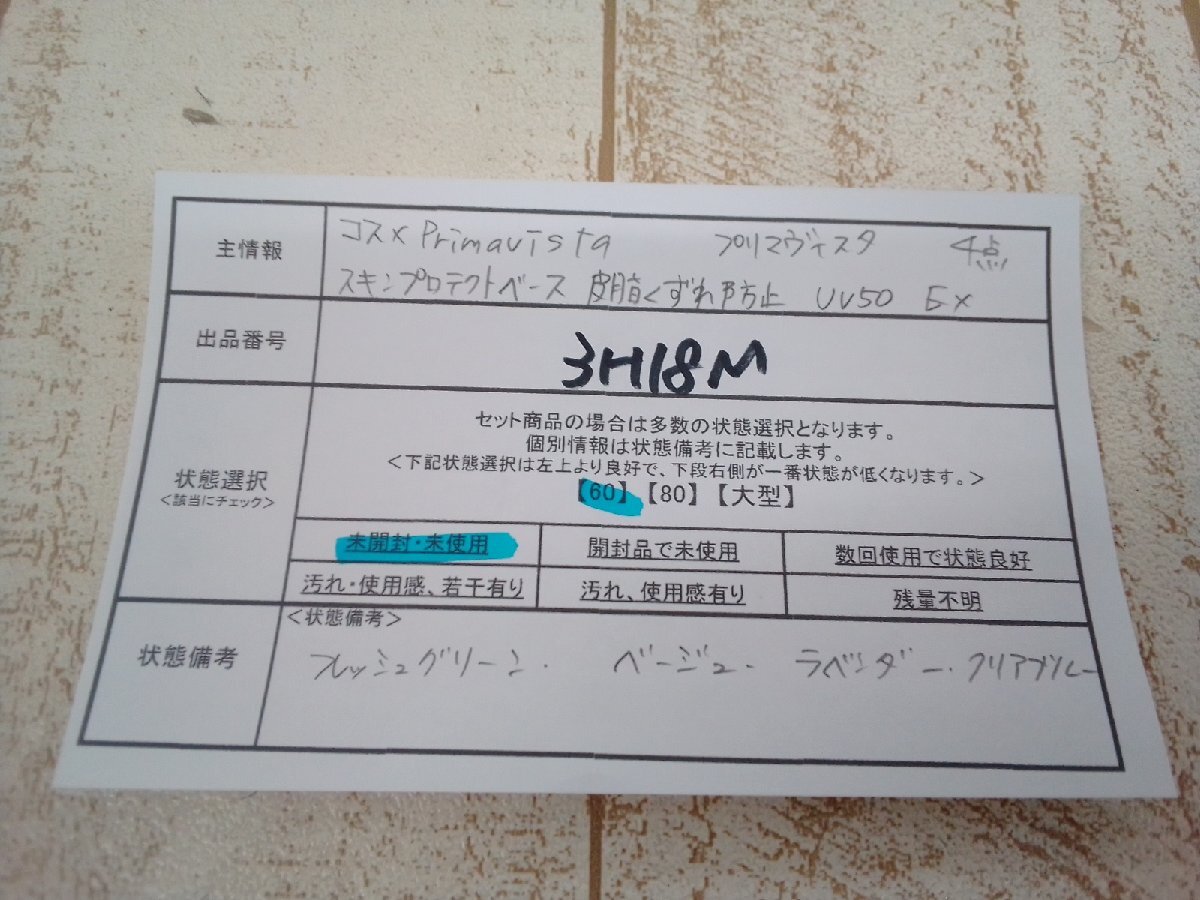 主情報
コスメ Primavista プリマヴィスタ 4点
スキンプロテクトベース 皮脂くずれ防止 UV50 Ex
出品番号
3H18M
状態選択
<該当にチェック>
セット商品の場合は多数の状態選択となります。
個別情報は状態備考に記載します。
<下記状態選択は左上より良好で、下段右側が一番状態が低くなります。>
【60】【80】【大型】
未開封・未使用 開封品で未使用 数回使用で状態良好
汚れ・使用感、若干有り 汚れ、使用感有り 残量不明
状態備考
<状態備考>
フレッシュグリーン・ ベージュ・ ラベンダー・クリアブルー